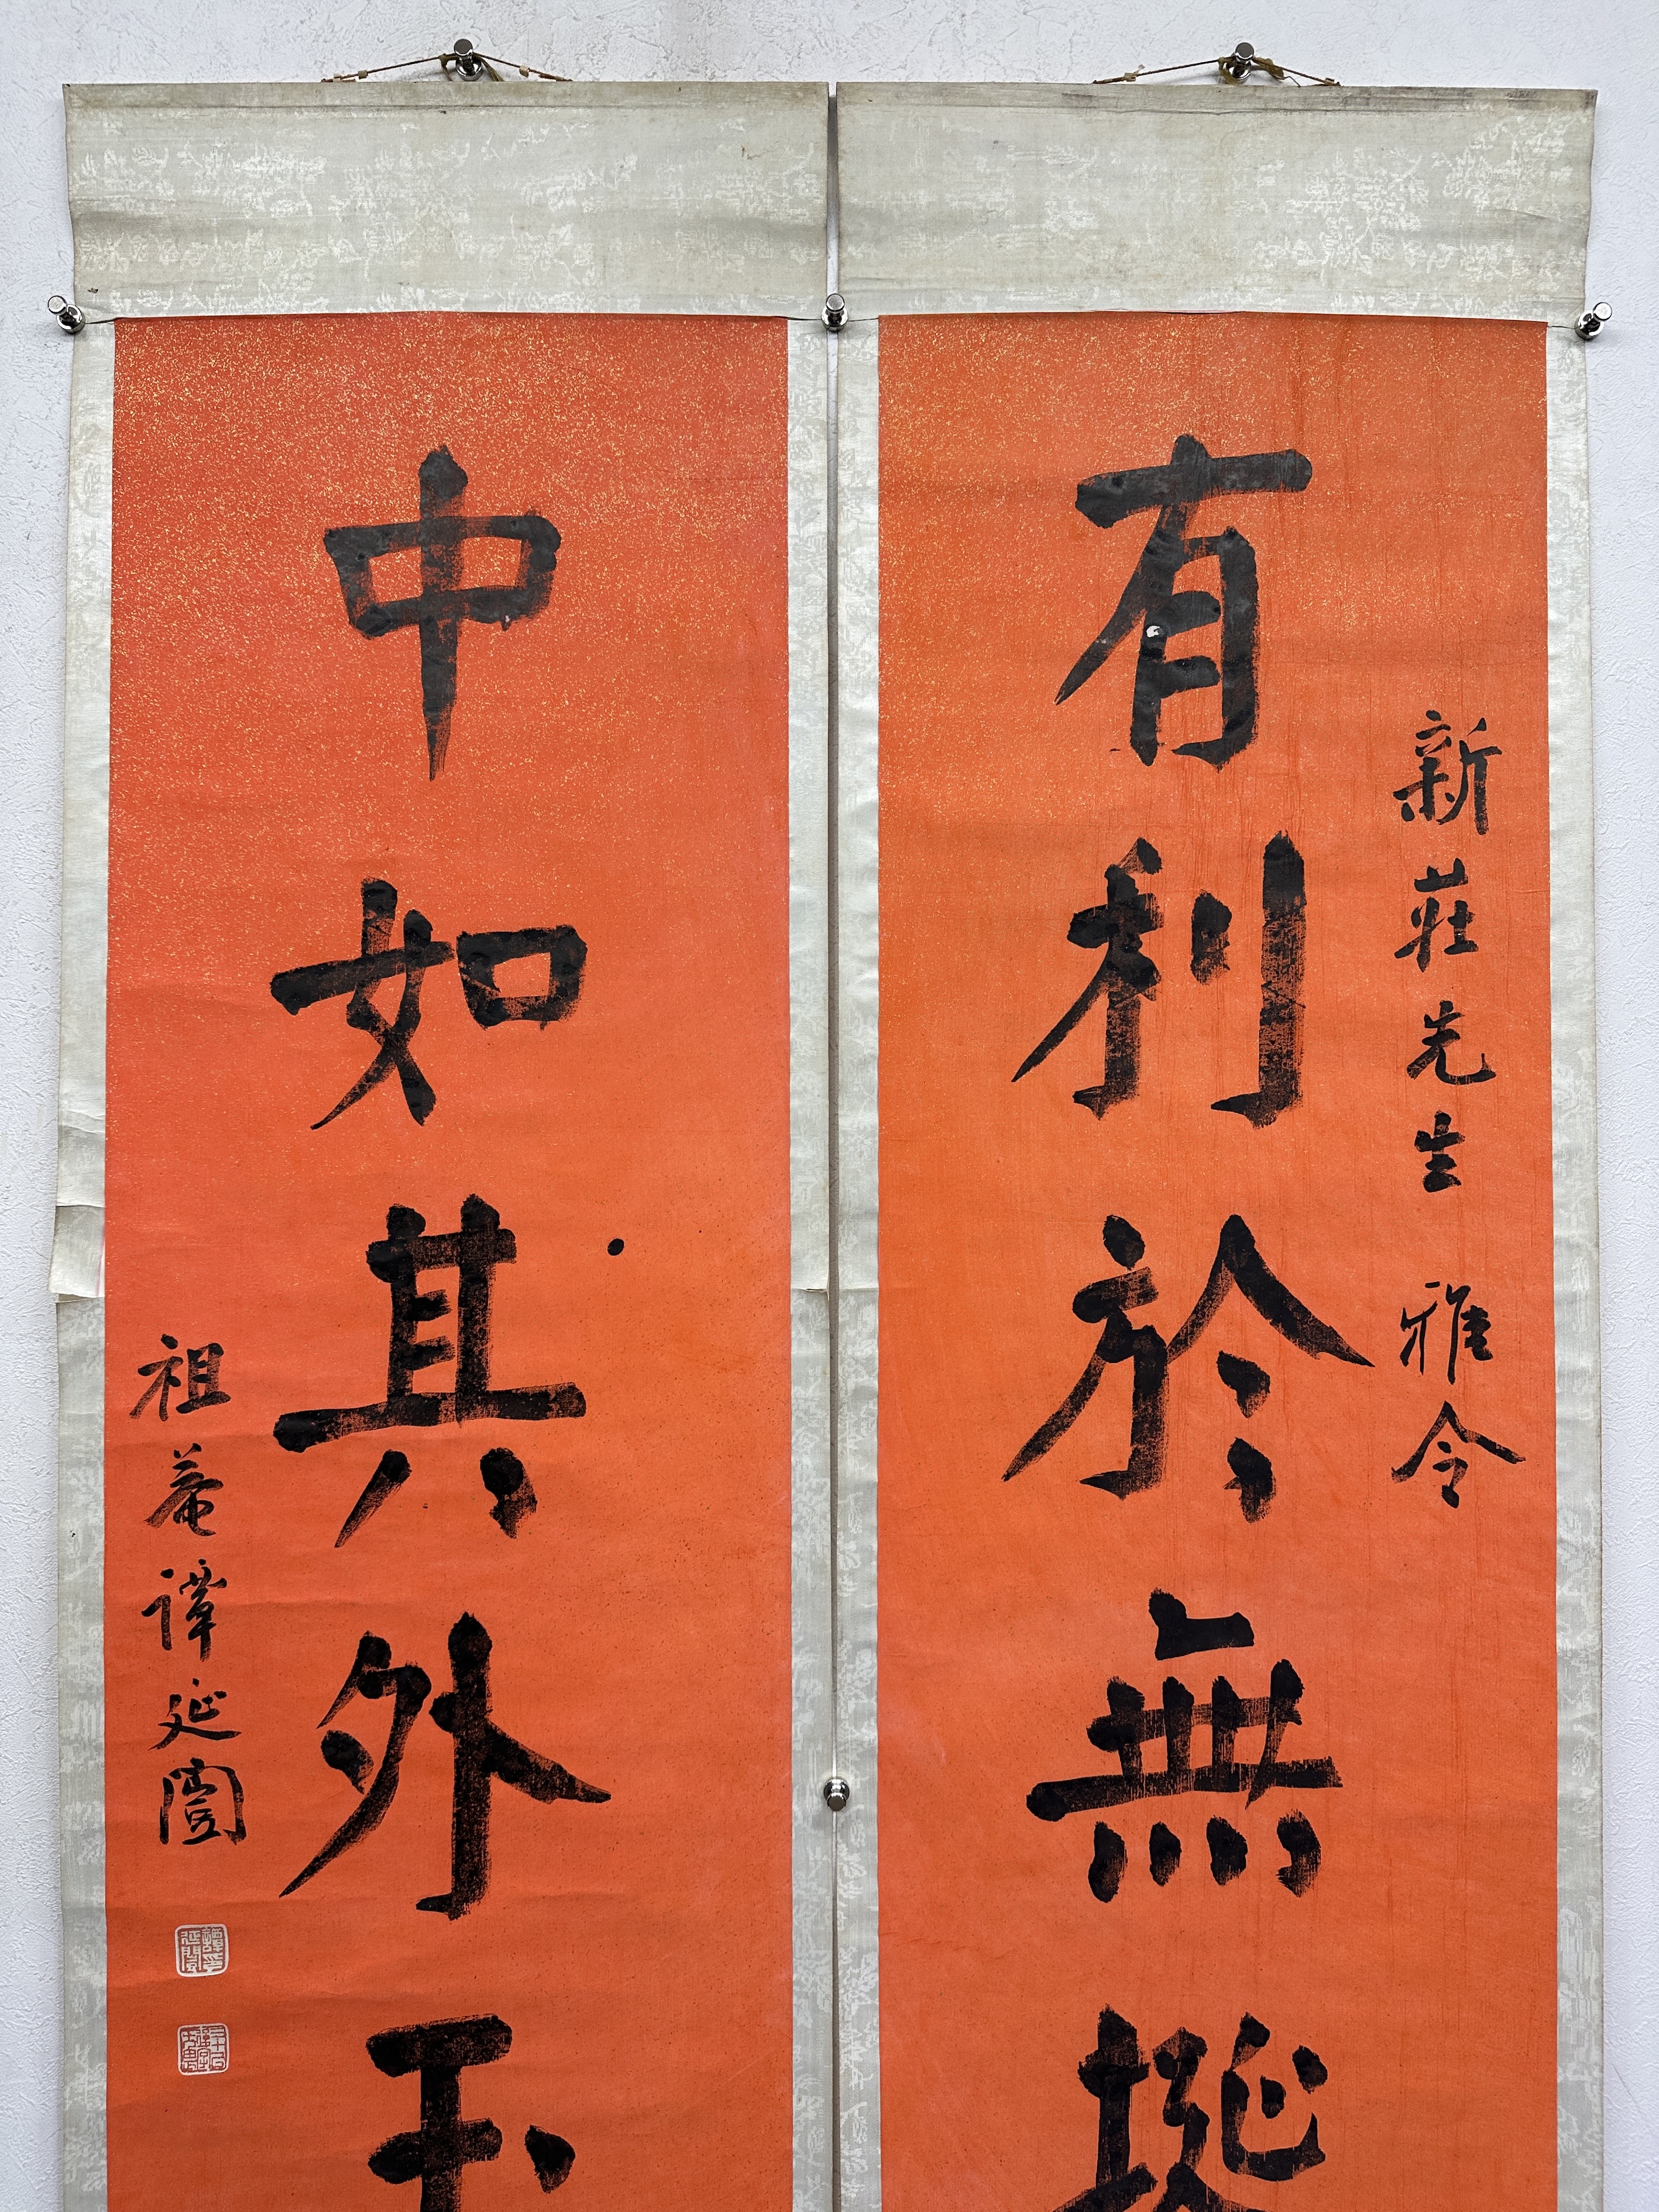 新莊先生 雅令
有利於無
中如其外玉
祖菴譚延闓
譚延闓印